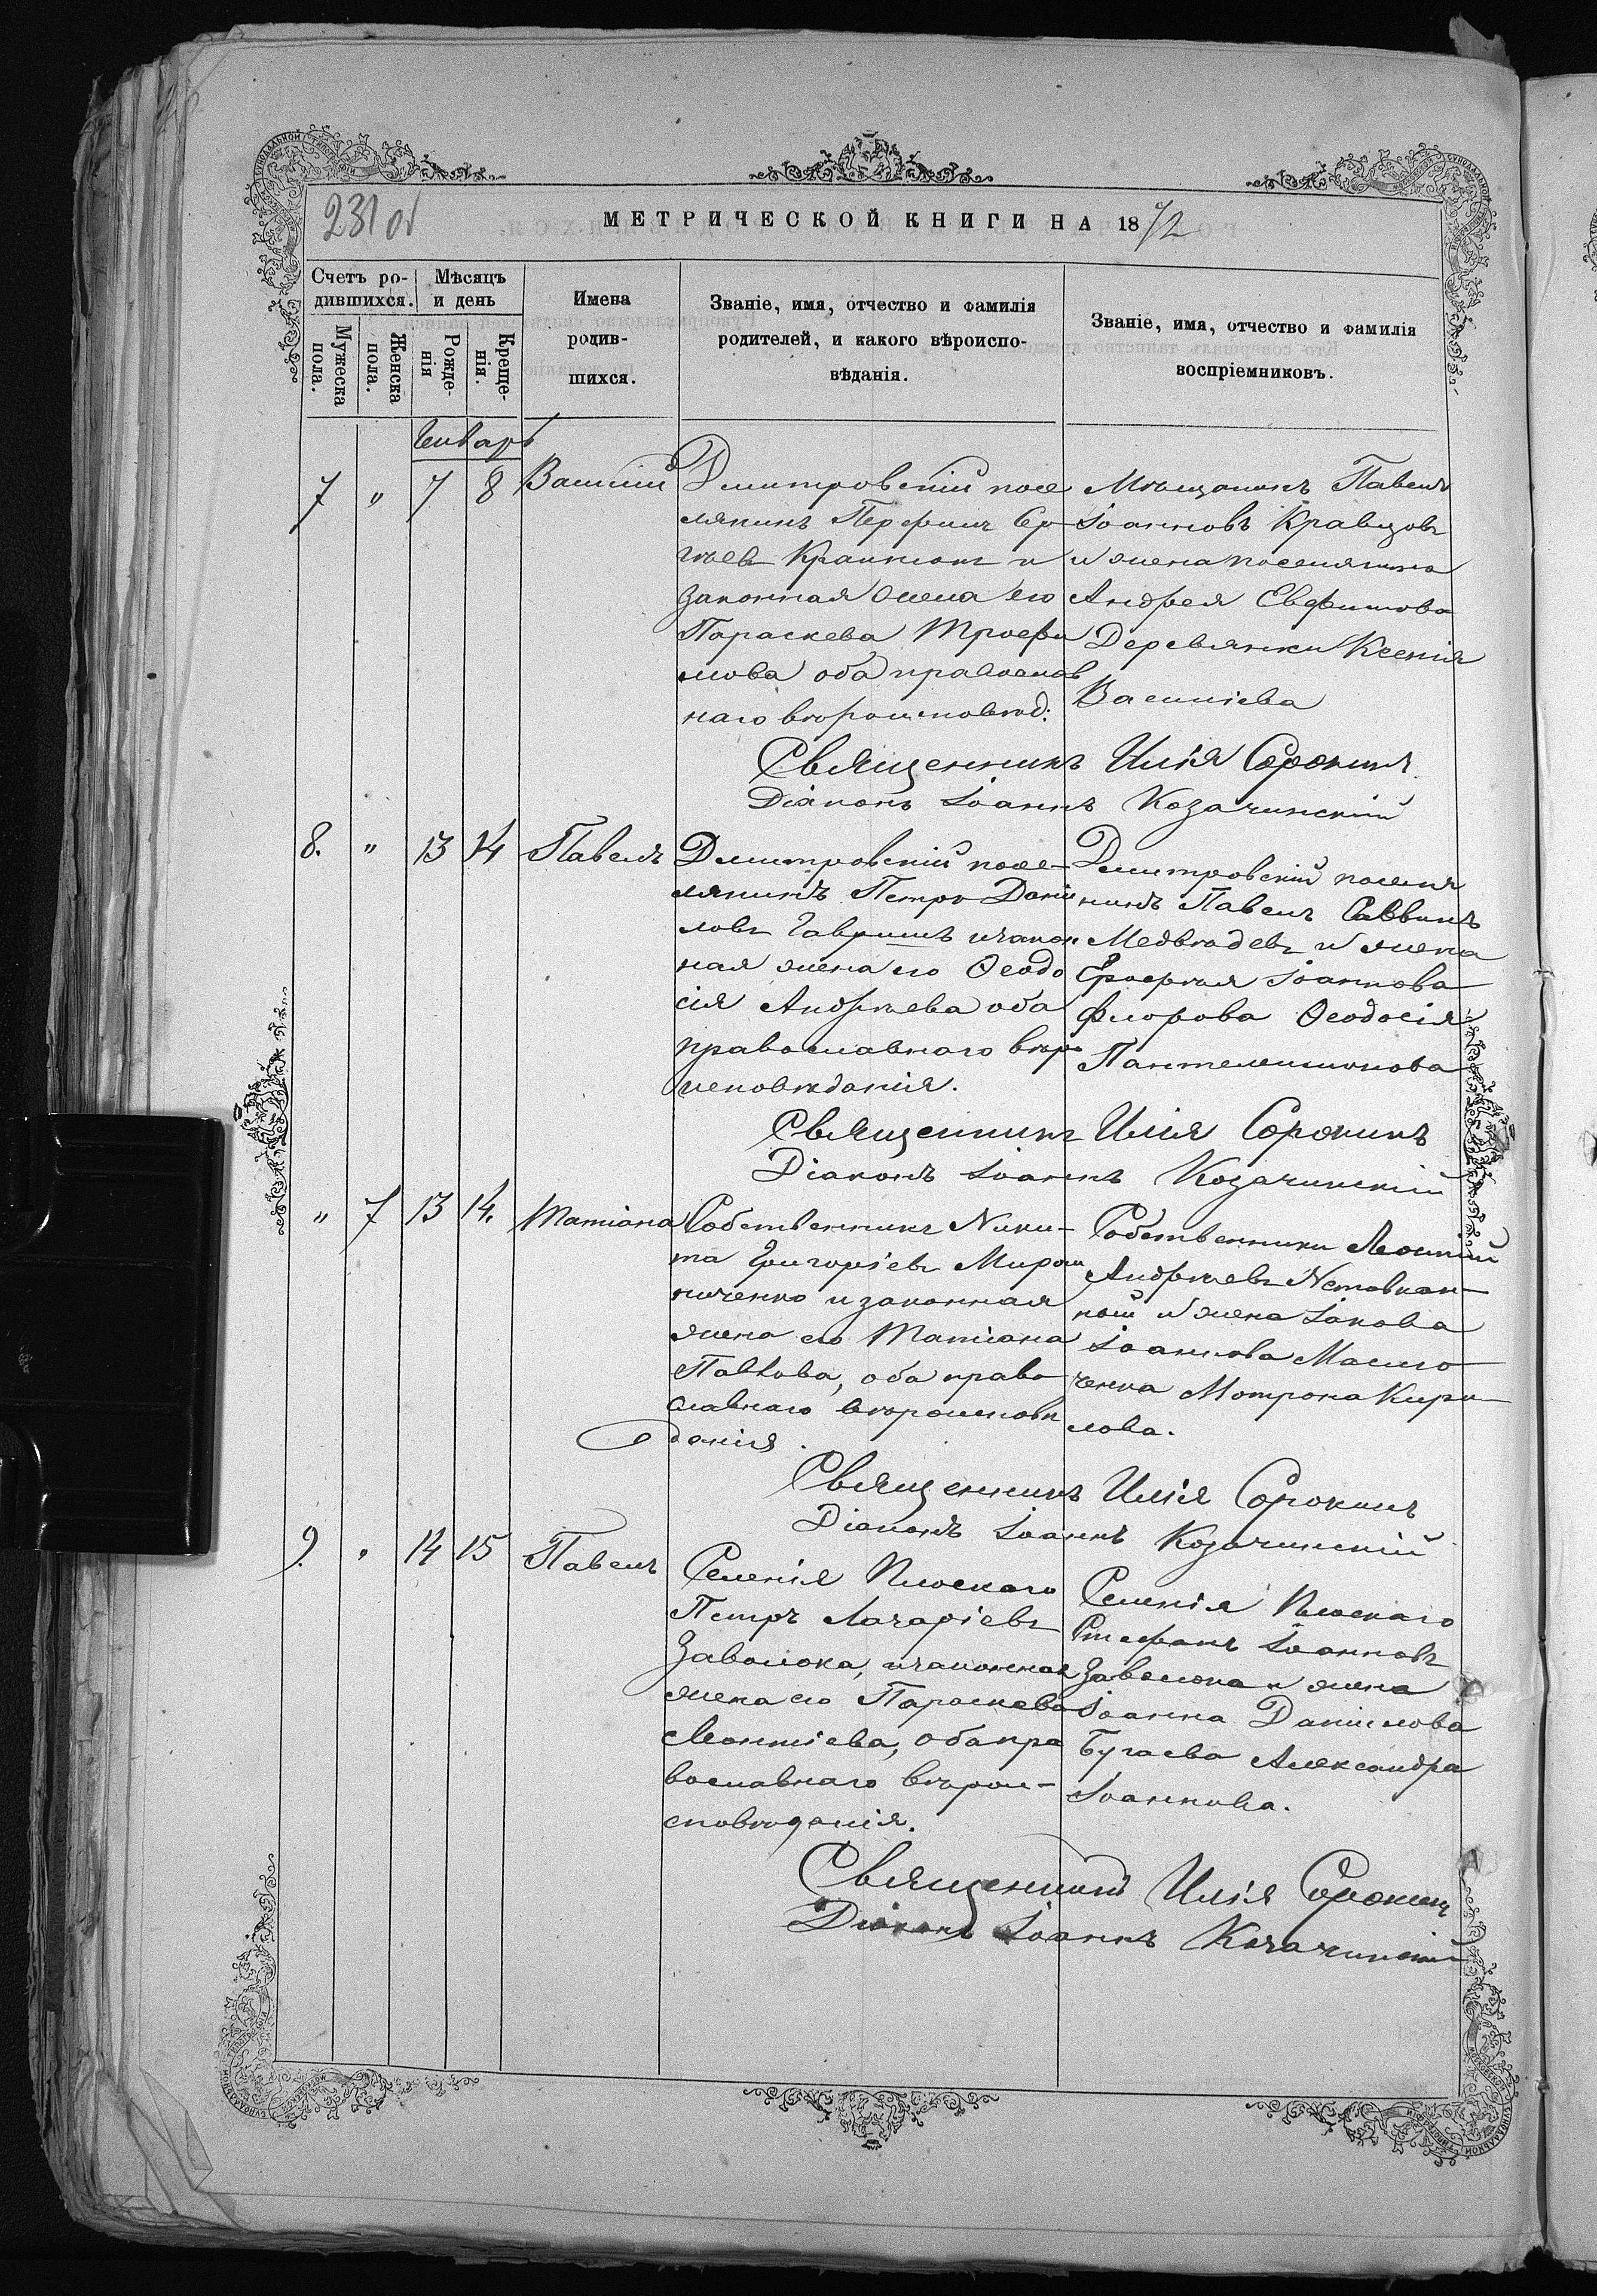 231 об
МЕТРИЧЕСКОЙ КНИГИ НА 1872
Счетъ ро-
дившихся.
Мѣсяцъ
и день
Имена
родив-
шихся.
Званіе, имя, отчество и фамилія
родителей, и какого вѣроиспо-
вѣданія.
Званіе, имя, отчество и фамилія
воспріемниковъ.
Мужеска
пола.
Женска
пола.
Рожде-
нія
Креще-
нія.
Январь
7 " 7 8 Василій
Дмитровскій посе
лянинъ Перфилъ Ер
и
законная жена его
Параскева Трофи
мова оба православ
наго вѣроисповѣд:
Мѣщанинъ Павелъ
Іоанновъ Кравцовъ
и жена поселянина
Андрея Евфимова
Деревянки Ксенія
Василіева
Священникъ Илія Сорокинъ
Діаконъ Іоаннъ Козачинскій
8. " 13 14 Павелъ
Дмитровскій посе-
лянинъ Петръ Даніи
ловъ Гавришъ и закон
ная жена его Ѳеодо
сія Андреева оба
православнаго вѣро
исповѣданія.
Дмитровскій поселя
нинъ Павелъ Саввинъ
Медвѣдевъ и жена
Іоаннова
Флорова Ѳеодосія
Пантелеимонова
Священникъ Илія Сорокинъ
Діаконъ Іоаннъ Козачинскій
" 7 13 14. Татіана
Собственникъ Ники-
та Григоріевъ Мирош
ниченко и законная
жена его Татіана
Павлова, оба право
славнаго вѣроисповѣ
данія.
Собственники Леонтій
Андреевъ
и жена Іакова
Іоаннова
Мотрона Кири-
лова.
Священникъ Илія Сорокинъ
Діаконъ Іоаннъ Козачинскій
9. " 14 15 Павелъ
Селенія Плоскаго
Петръ Захаріевъ
Заволока, и законная
жена его Параскева
Леонтіева, оба пра
вославнаго вѣрои-
сповѣданія.
Селенія Плоскаго
Стефанъ Іоанновъ
Заволока и жена
Іоанна Даніилова
Бугаева Александра
Іоаннова.
Священникъ Илія Сорокинъ
Діаконъ Іоаннъ Козачинскій